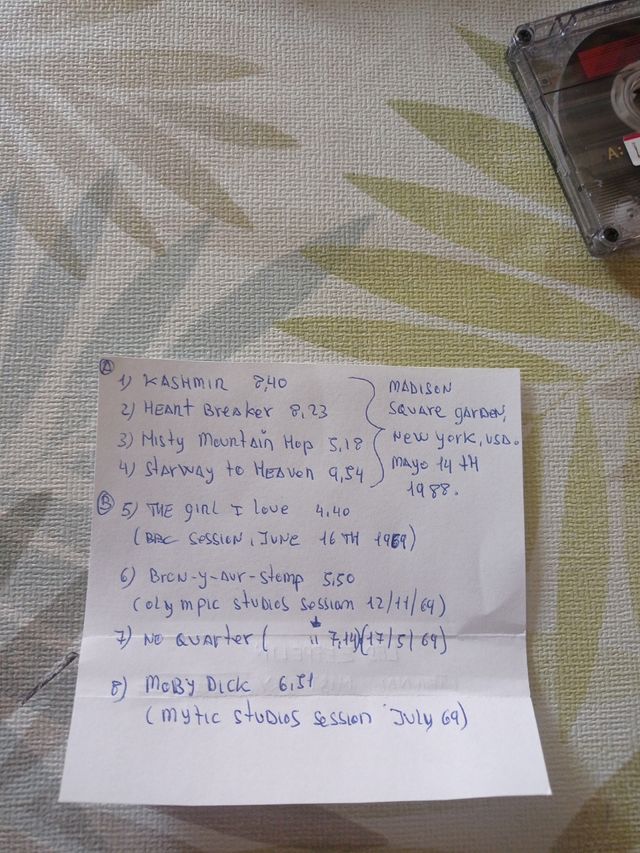 A
1) KASHMIR 8,40
2) HEART Breaker 8,23
3) Misty Mountain Hop 5,18
4) Stairway to Heaven 9,54
MADISON
SQUARE GARDEN,
NEW YORK, USA.
MAYO 14 TH
1988.
B
5) THE GIRL I LOVE 4,40
(BBC SESSION, JUNE 16 TH 1969)
6) Bron-y-aur-stomp 5,50
(OLYMPIC STUDIOS SESSION 12/11/69)
7) NO QUARTER ( " 7,14)(17/5/69)
8) MOBY DICK 6,51
(MYTIC STUDIOS SESSION JULY 69)
A: L